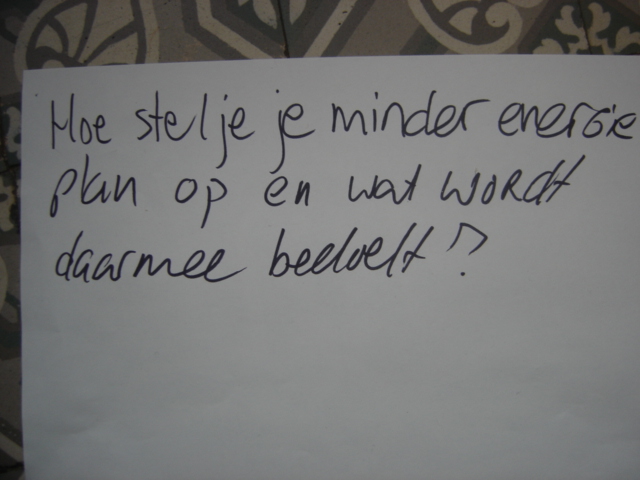 Hoe stel je je minder energie
plan op en wat wordt
daarmee bedoelt?